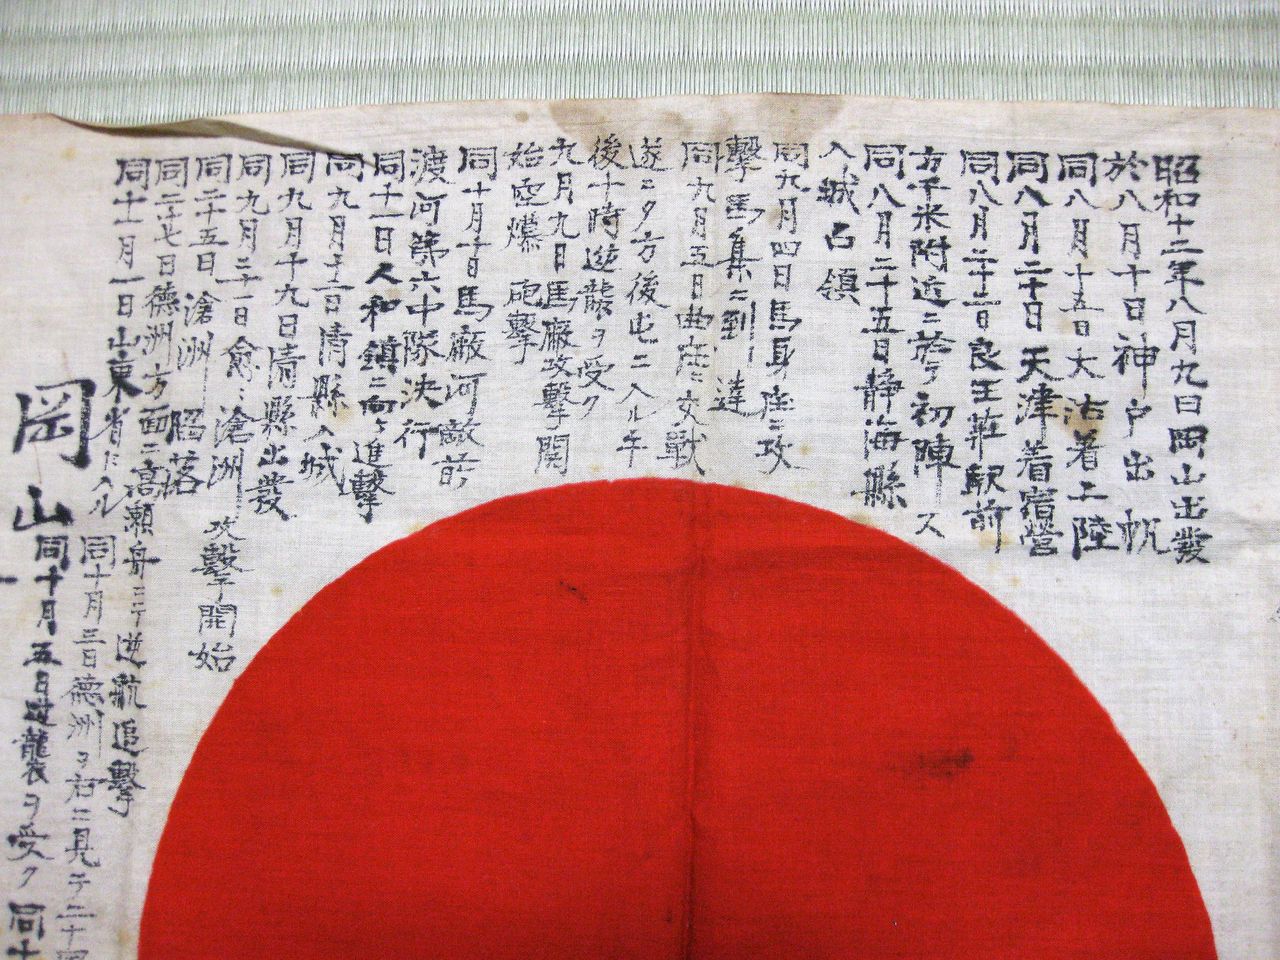 昭和十二年八月九日岡山出發
於八月十日神戸出帆
同八月十五日大沽着上陸
同八月二十日天津着宿營
同八月二十三日良王莊駅前
方千米附近ニ於テ初陣ス
同八月二十五日静海縣
入城占領
同九月四日馬
擊馬集ニ到達
同九月五日曲庄ニ交戰
遂ニ夕方後屯ニ入ル午
後十時逆襲ヲ受ク
九月九日馬廠攻擊開
始空爆砲擊
同十月十日馬廠河敵前
渡河第六中隊決行
同十一日人和鎮ニ向ヒ進擊
同九月十二日靑縣入城
同九月十九日靑縣出發
同九月二十一日愈々滄洲攻擊開始
同二十五日滄洲陷落
同二十七日德洲方面ニ高瀨舟ニテ逆航追擊
同十月一日山東省ニ入ル
同十月三日德洲ヲ右ニ見テ二十
岡山
同十月五日逆襲ヲ受ク同十